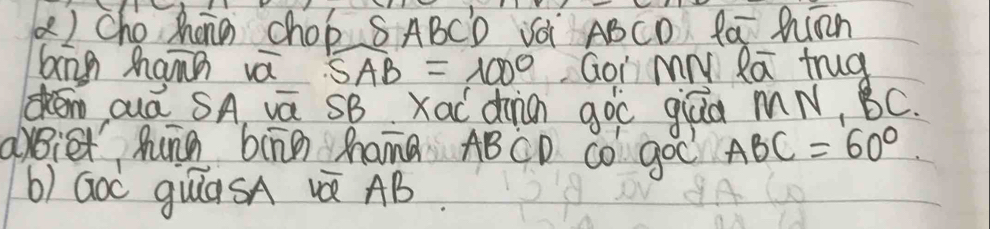 2) Cho hình chóp S ABCD với ABCD là hình
bình hành và SAB = 100°. Gọi MN là trug
điểm của SA và SB. Xác định góc giữa MN, BC.
a) Biết hình bình hành ABCD có góc ABC = 60°.
b) Góc giữa SA và AB